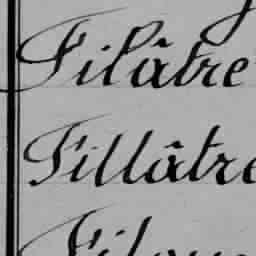 Filâtre
Fillâtre